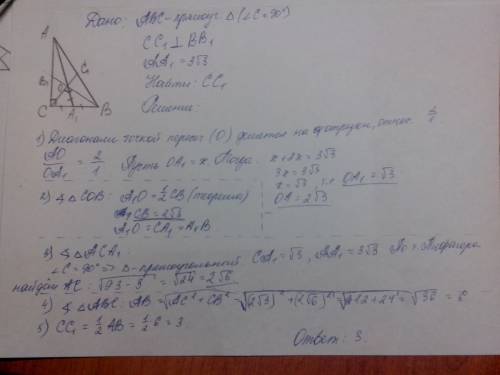 Дано: ABC - прямоуг. Δ (∠C = 90°)
CC₁ ⊥ BB₁
AA₁ = 3√3
Найти: CC₁
Решение:
A
B₁
C₁
O
C
A₁
B
1) точкой пересеч (O) делятся на отрезки,
AO/OA₁ = 2/1 Пусть OA₁ = x Тогда: x + 2x = 3√3
3x = 3√3
x = √3, OA₁ = √3
OA = 2√3
2) ∢ ΔCOB: A₁O = 1/2 CB (теорема)
CB = 2√3
A₁O = CA₁ = A₁B
3) ∢ ΔACA₁:
∠C = 90° => Δ - прямоугольный CA₁ = √3, AA₁ = 3√3 Пифагора
найдём AC: = √24 = 2√6
4) ∢ ΔABC: AB = √AC² + CB² = √(2√3)² + (2√6)² = √12 + 24 = √36 = 6
5) CC₁ = 1/2 AB = 1/2 6 = 3
Ответ: 3.